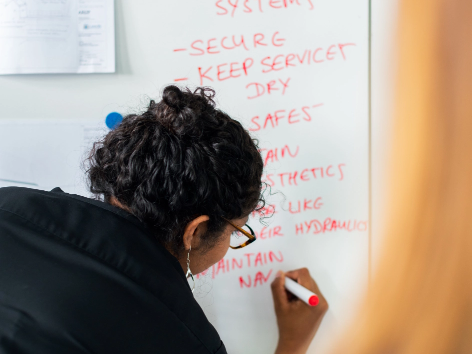 SYSTEMS
- SECURE
- KEEP SERVICET
DRY
SAFEST
AIN
STHETICS
LIKE
EIR HYDRAULICS
MAINTAIN
NAV